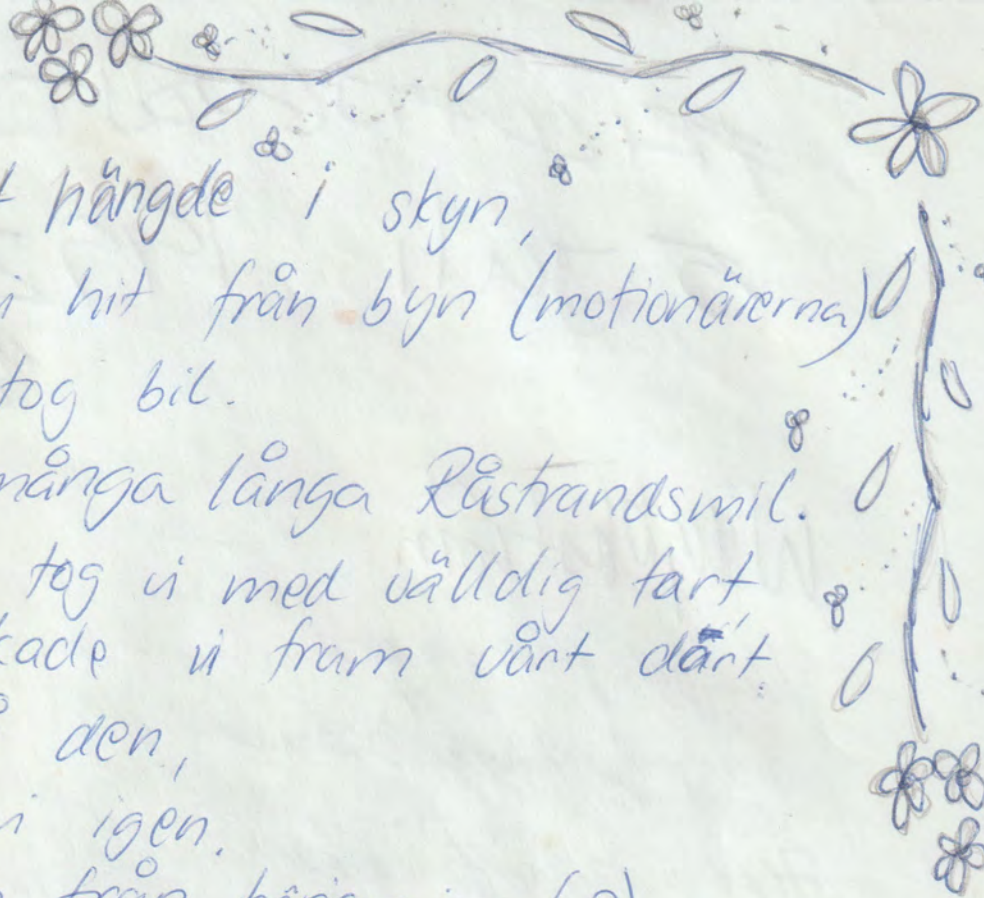 hängde i skyn,
hit från byn (motionärerna)
tog bil.
många långa Råstrandsmil.
tog vi med välldig fart,
vi fram vårt
den,
igen.
från